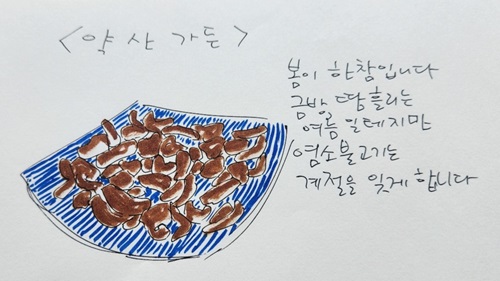 <약산가든>
봄이 한참입니다
금방 땀흘리는
여름일테지만
염소불고기는
계절을 잊게 합니다